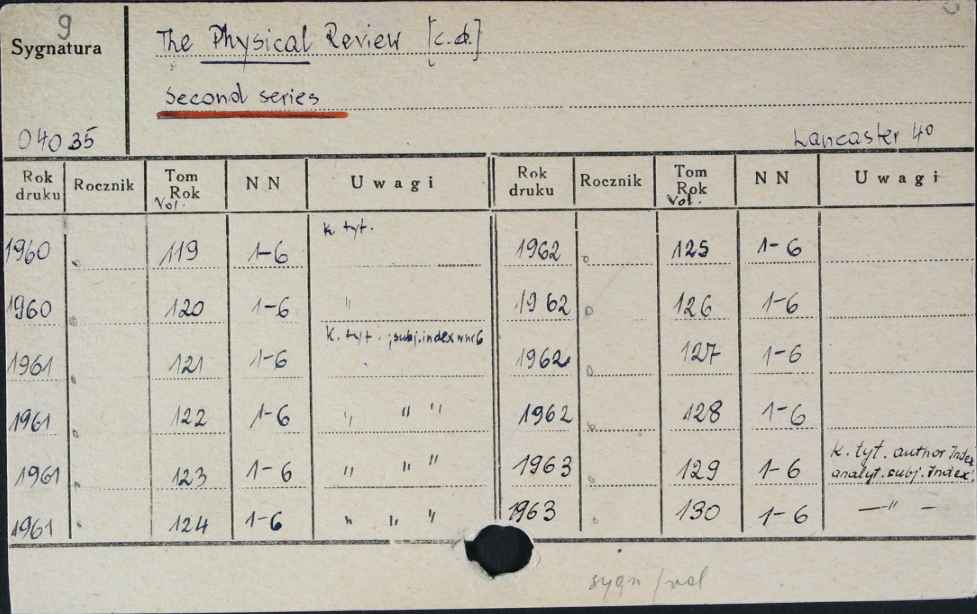 9
Sygnatura
The Physical Review [c.d.]
Second series
04035
Lancaster 40
Rok druku Rocznik Tom Rok Vol. N N Uwagi Rok druku Rocznik Tom Rok Vol. N N Uwagi
1960 119 1-6 k. tyt. 1962 125 1-6
1960 120 1-6 " 1962 126 1-6
1961 121 1-6 k. tyt. ; subj. index w nr 6 1962 127 1-6
1961 122 1-6 " " " 1962 128 1-6
1961 123 1-6 " " " 1963 129 1-6 k. tyt. author index analyt. subj. index;
1961 124 1-6 " " " 1963 130 1-6 — " —
sygn/vol